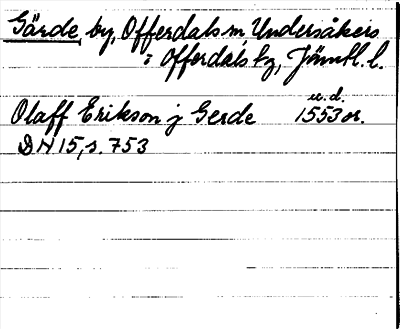 Gärde, by, Offerdals sn, Undersåkers
o Offerdals tg, Jämtl. l.
u.d.
Olaff Erikson j Gerde 1553 or.
DN 15, s. 753